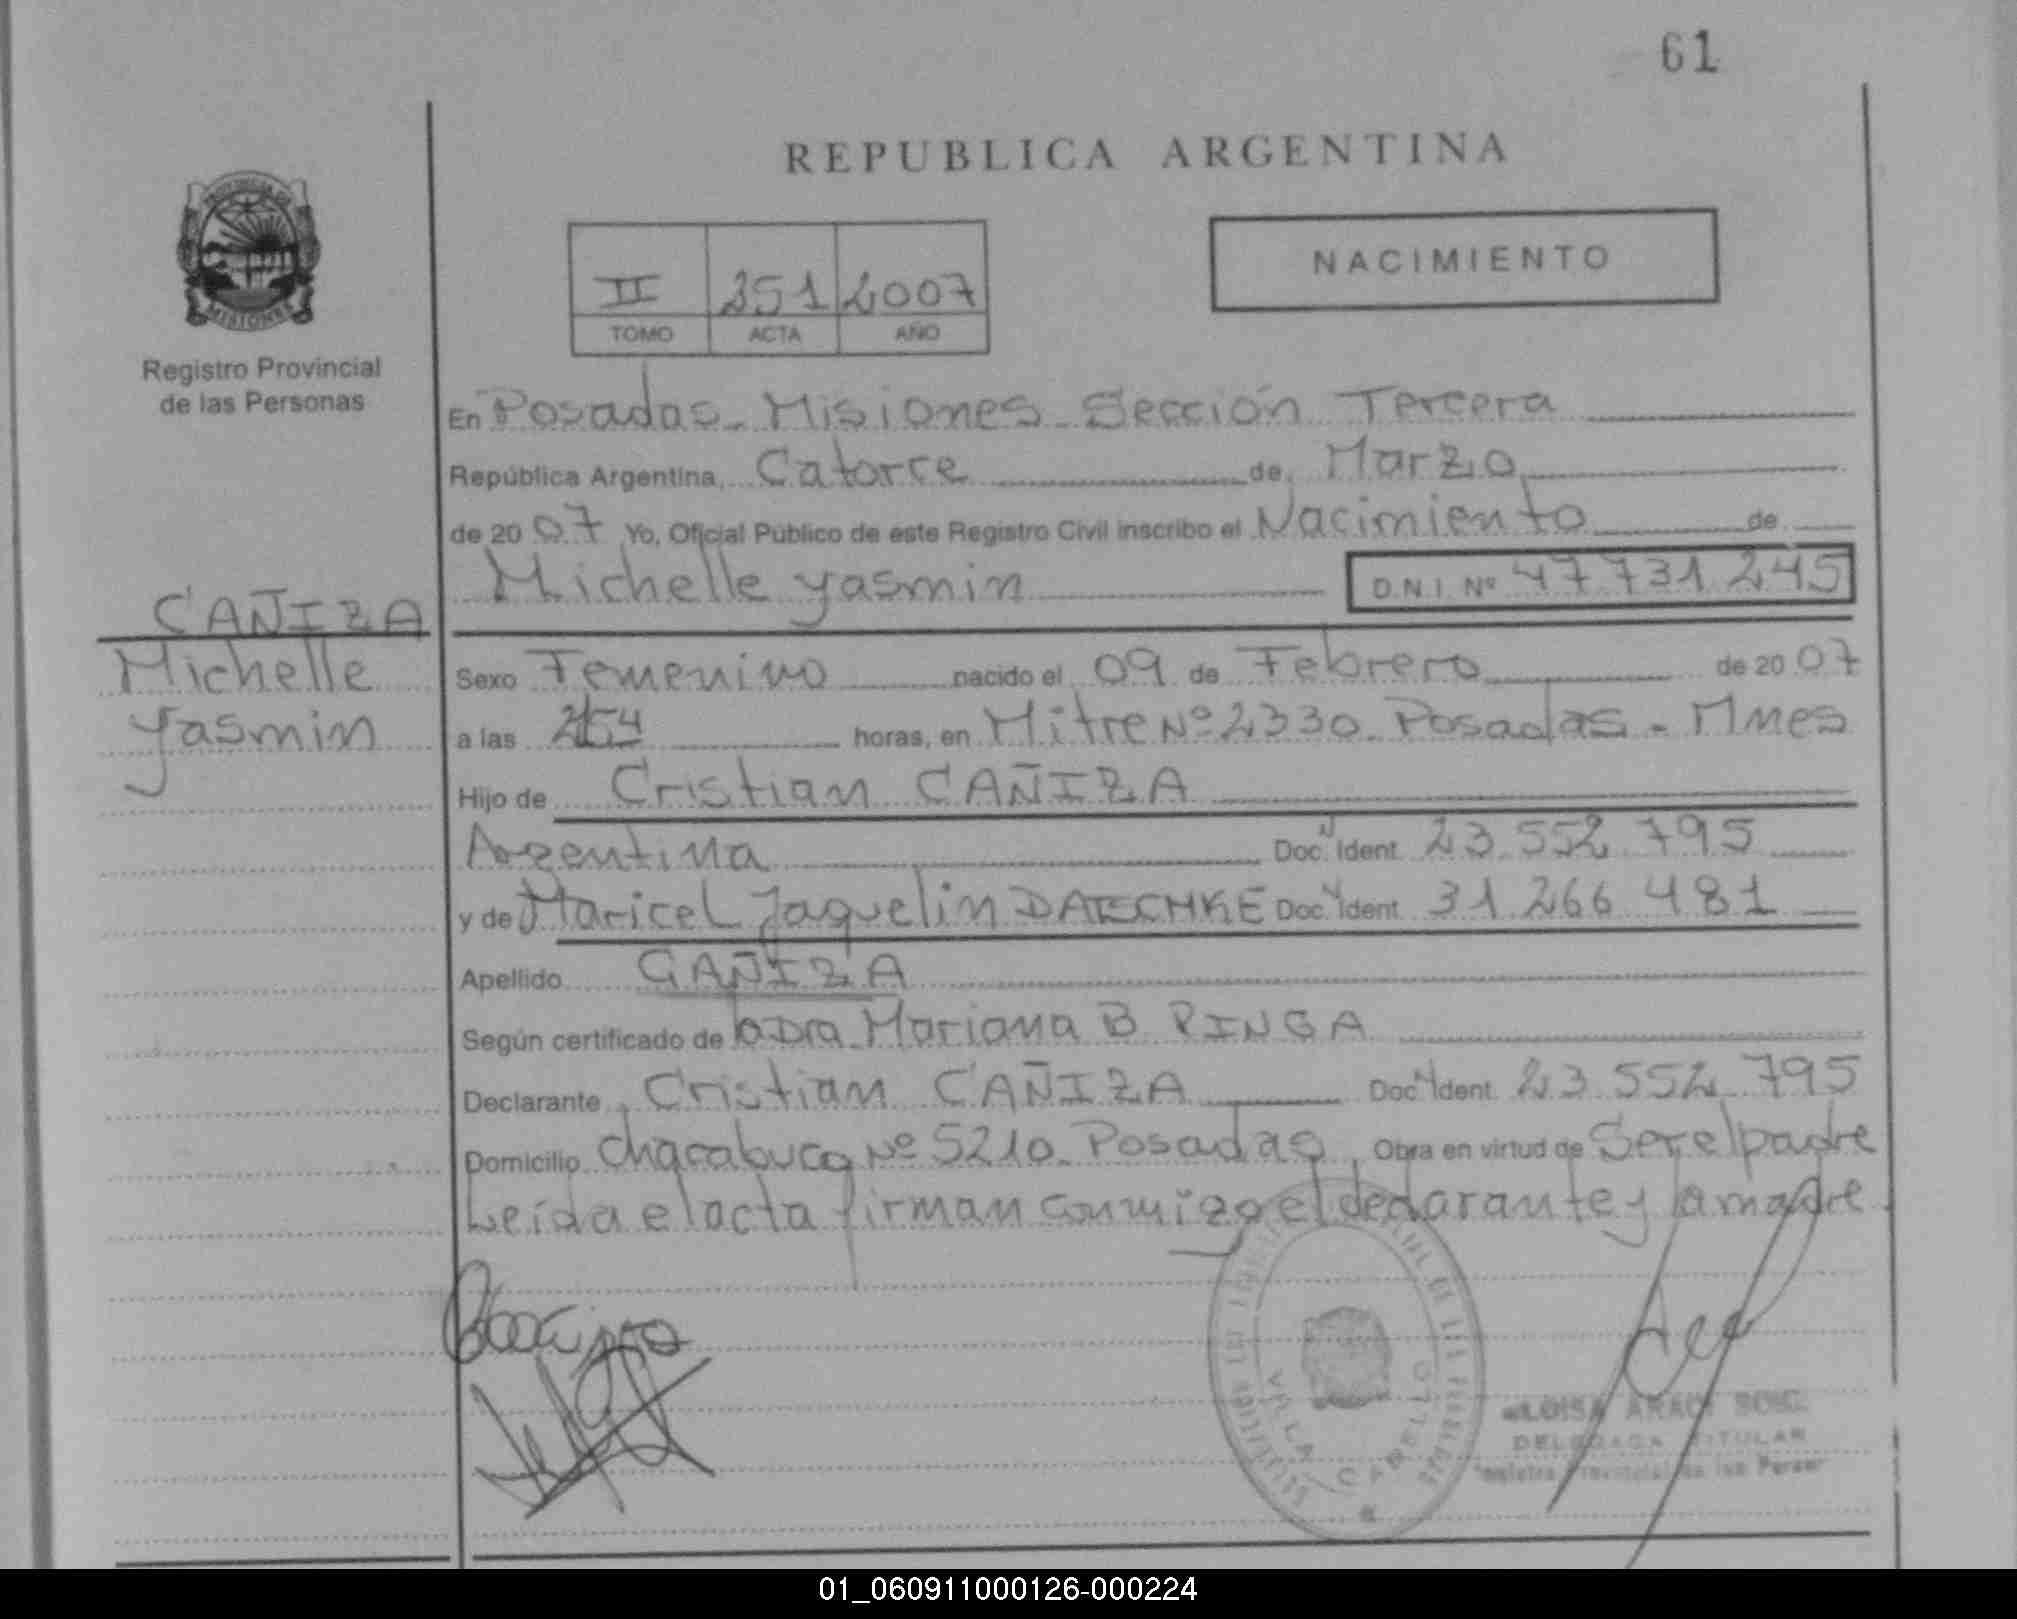 61
REPUBLICA ARGENTINA
NACIMIENTO
II 251 2007
TOMO ACTA AÑO
MISIONES
Registro Provincial
de las Personas
En Posadas - Misiones - Sección Tercera
República Argentina, Catorce de Marzo
de 2007 Yo, Oficial Público de este Registro Civil inscribo el Nacimiento de
Michelle yasmin D.N.I. Nº 47 731 245
CAÑIZA
Michelle
Yasmin
Sexo Femenino nacido el 09 de Febrero de 2007
a las horas, en Mitre Nº 2330 - Posadas - Mnes
Hijo de Cristian CAÑIZA
Argentina Doc. Ident. 23 552 795
y de Maricel Jaquelin Doc. Ident. 31 266 481
Apellido CAÑIZA
Según certificado de la Dra Mariana B
Declarante Cristian CAÑIZA Doc. Ident. 23 552 795
Domicilio Chacabuco Nº 5210 - Posadas Obra en virtud de Ser el padre
Leida el acta firman conmigo el declarante y la madre
VILLA CABELLO
DELEGADA TITULAR
Registro Provincial de las Personas
01_060911000126-000224